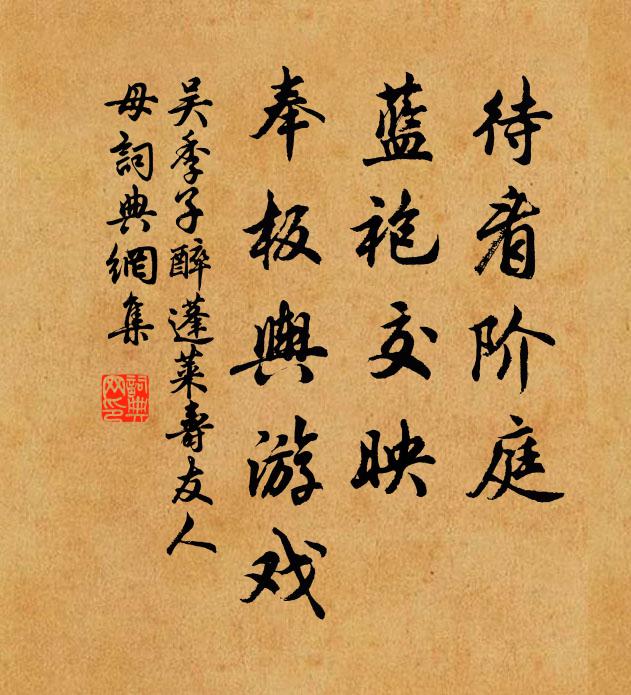 待看阶庭
蓝袍交映
奉板舆游戏
吴季子醉蓬莱寿友人
母詞典網集
詞典网印